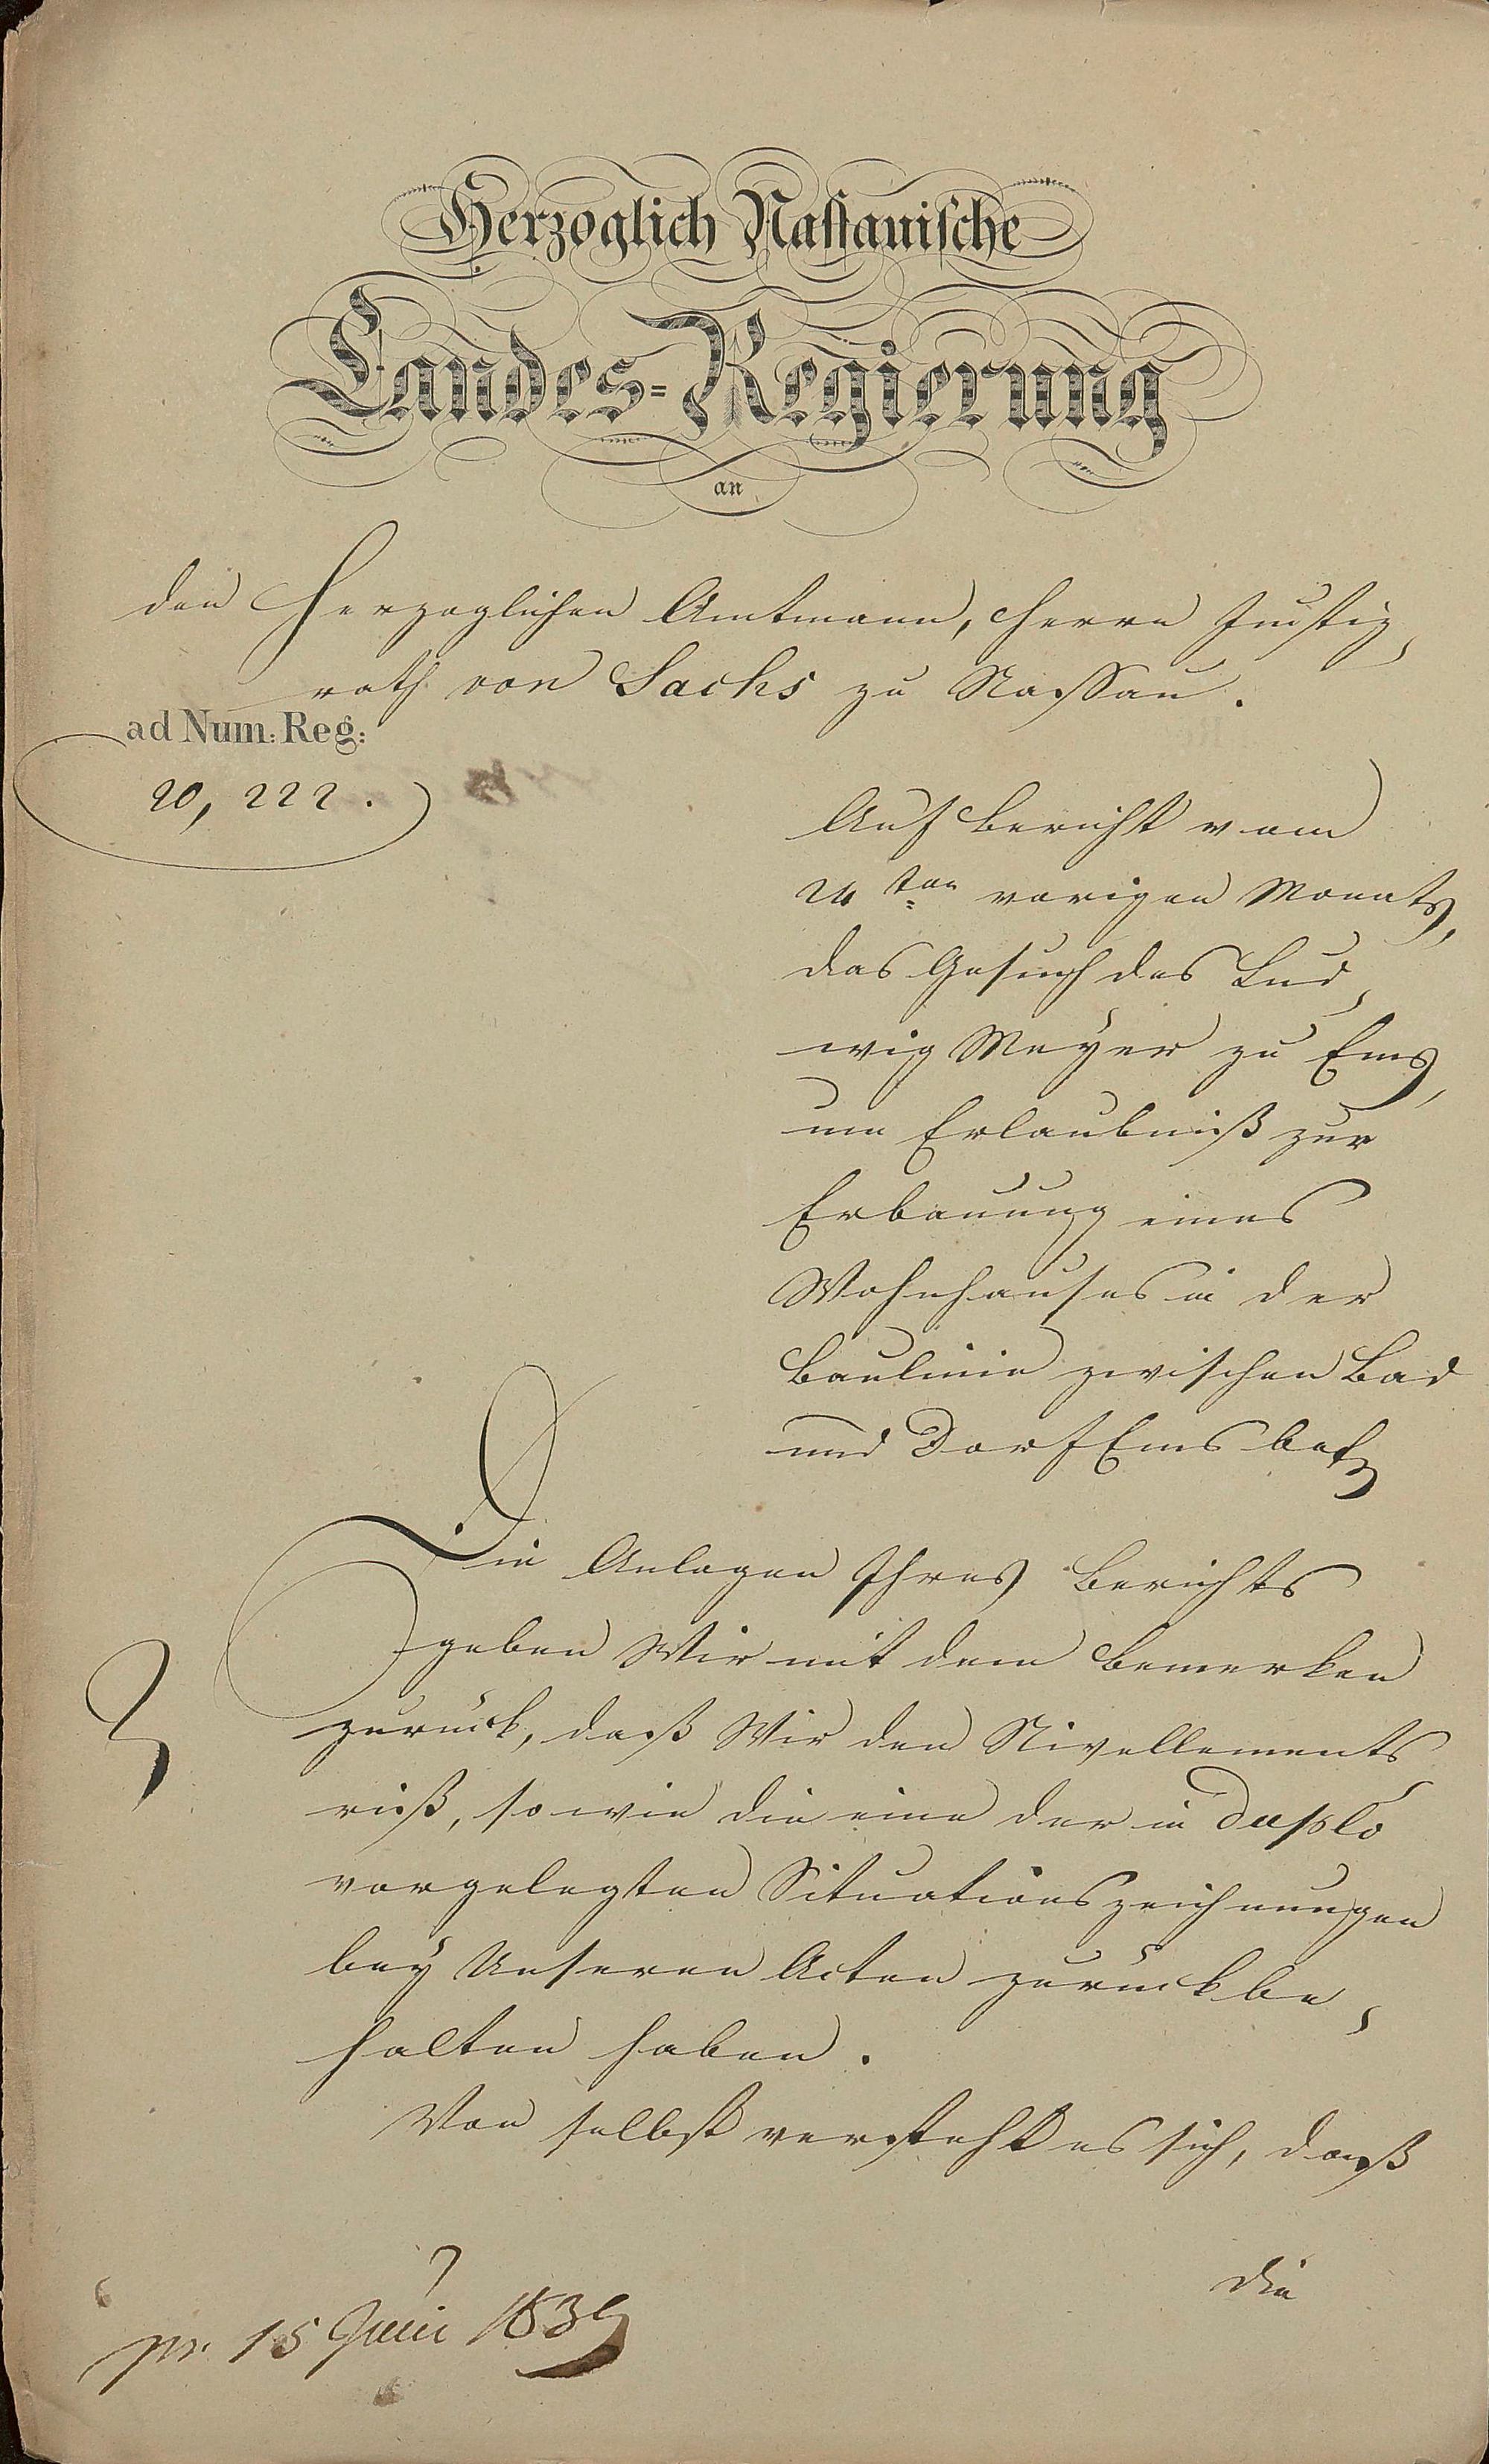 Herzoglich Nassauische
Landes=Regierung
an
den Herzoglichen Amtmann, Herrn Justiz,
rath von Sachs zu Nassau.
ad Num: Reg:
20,222.
Auf Bericht vom
24ten vorigen Monats,
das Gesuch des Lud,
wig Meyer zu Ems,
um Erlaubniß zur
Erbauung eines
Wohnhauses in der
Baulinie zwischen Bad
und Dorf Ems betr
Die Anlagen Ihres Berichts
geben Wir mit dem Bemerken
zurück, daß Wir den Nivellements
riß, so wie die eine der in duplo
vorgelegten Situationszeichnungen
bey Unseren Acten zurückbe,
halten haben.
Von selbst versteht es sich, daß
die
pr. 15 Juni 1839